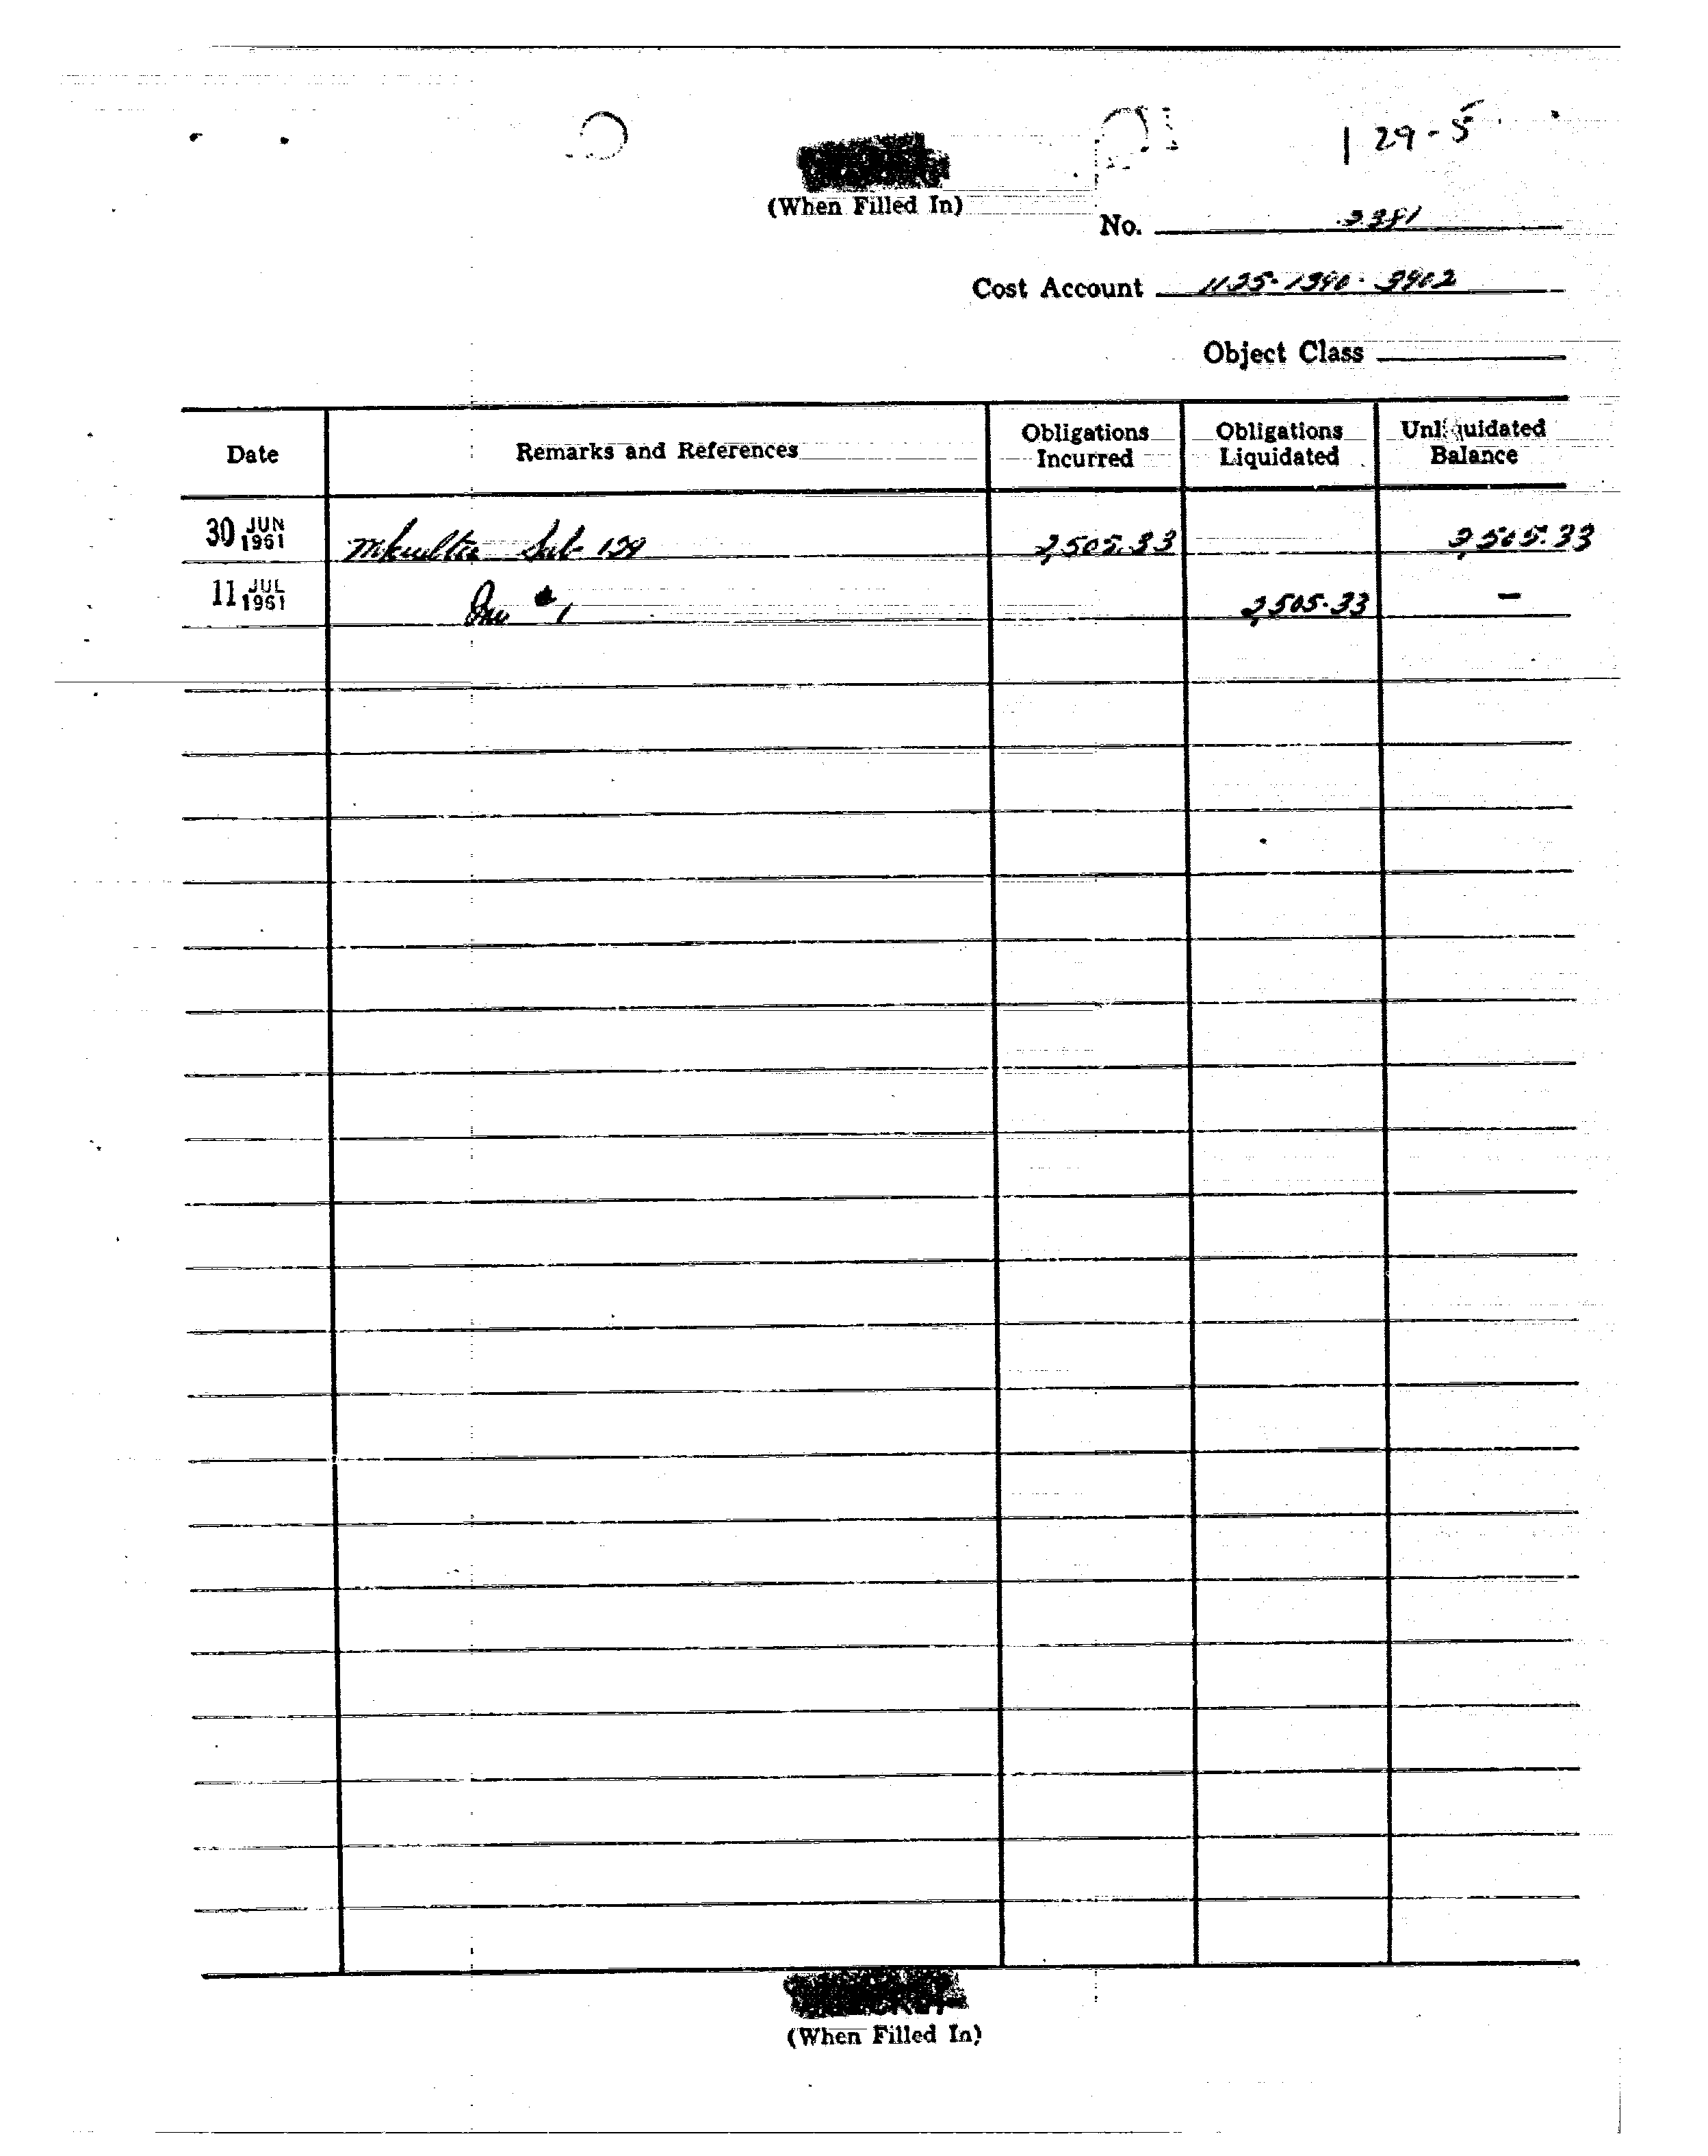 129-5
(When Filled In)
No. 2381
Cost Account 1125-1390-3902
Object Class
Date Remarks and References Obligations Incurred Obligations Liquidated Unliquidated Balance
30 JUN 1961 Mkultra Sub- 129 2,505.33 2,505.33
11 JUL 1961 Inv #1 2,505.33 -
(When Filled In)